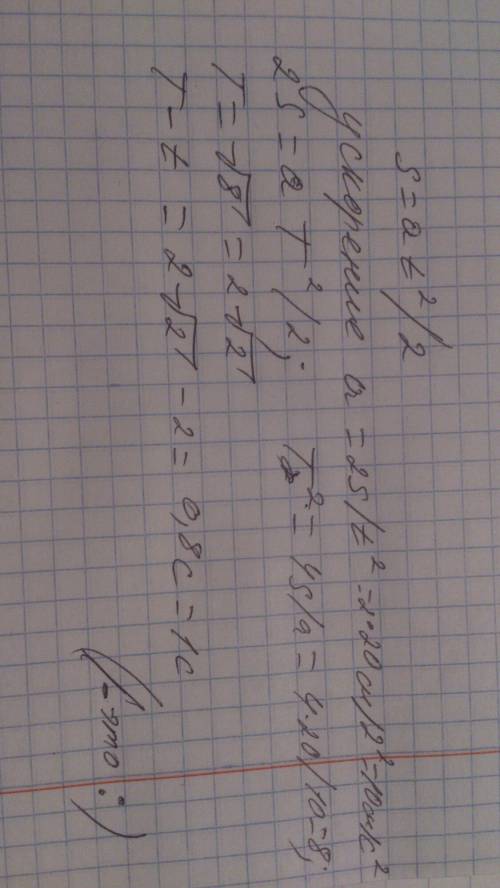 S = at²/2
Ускорение a = 2S/t² = 2·20м/2² = 10м/с²
2S = a T²/2; T² = 4S/a = 4·20/10 = 8;
T = √8 = 2√2
T - t = 2√2 - 2 = 0,8с = 1с
- это :)